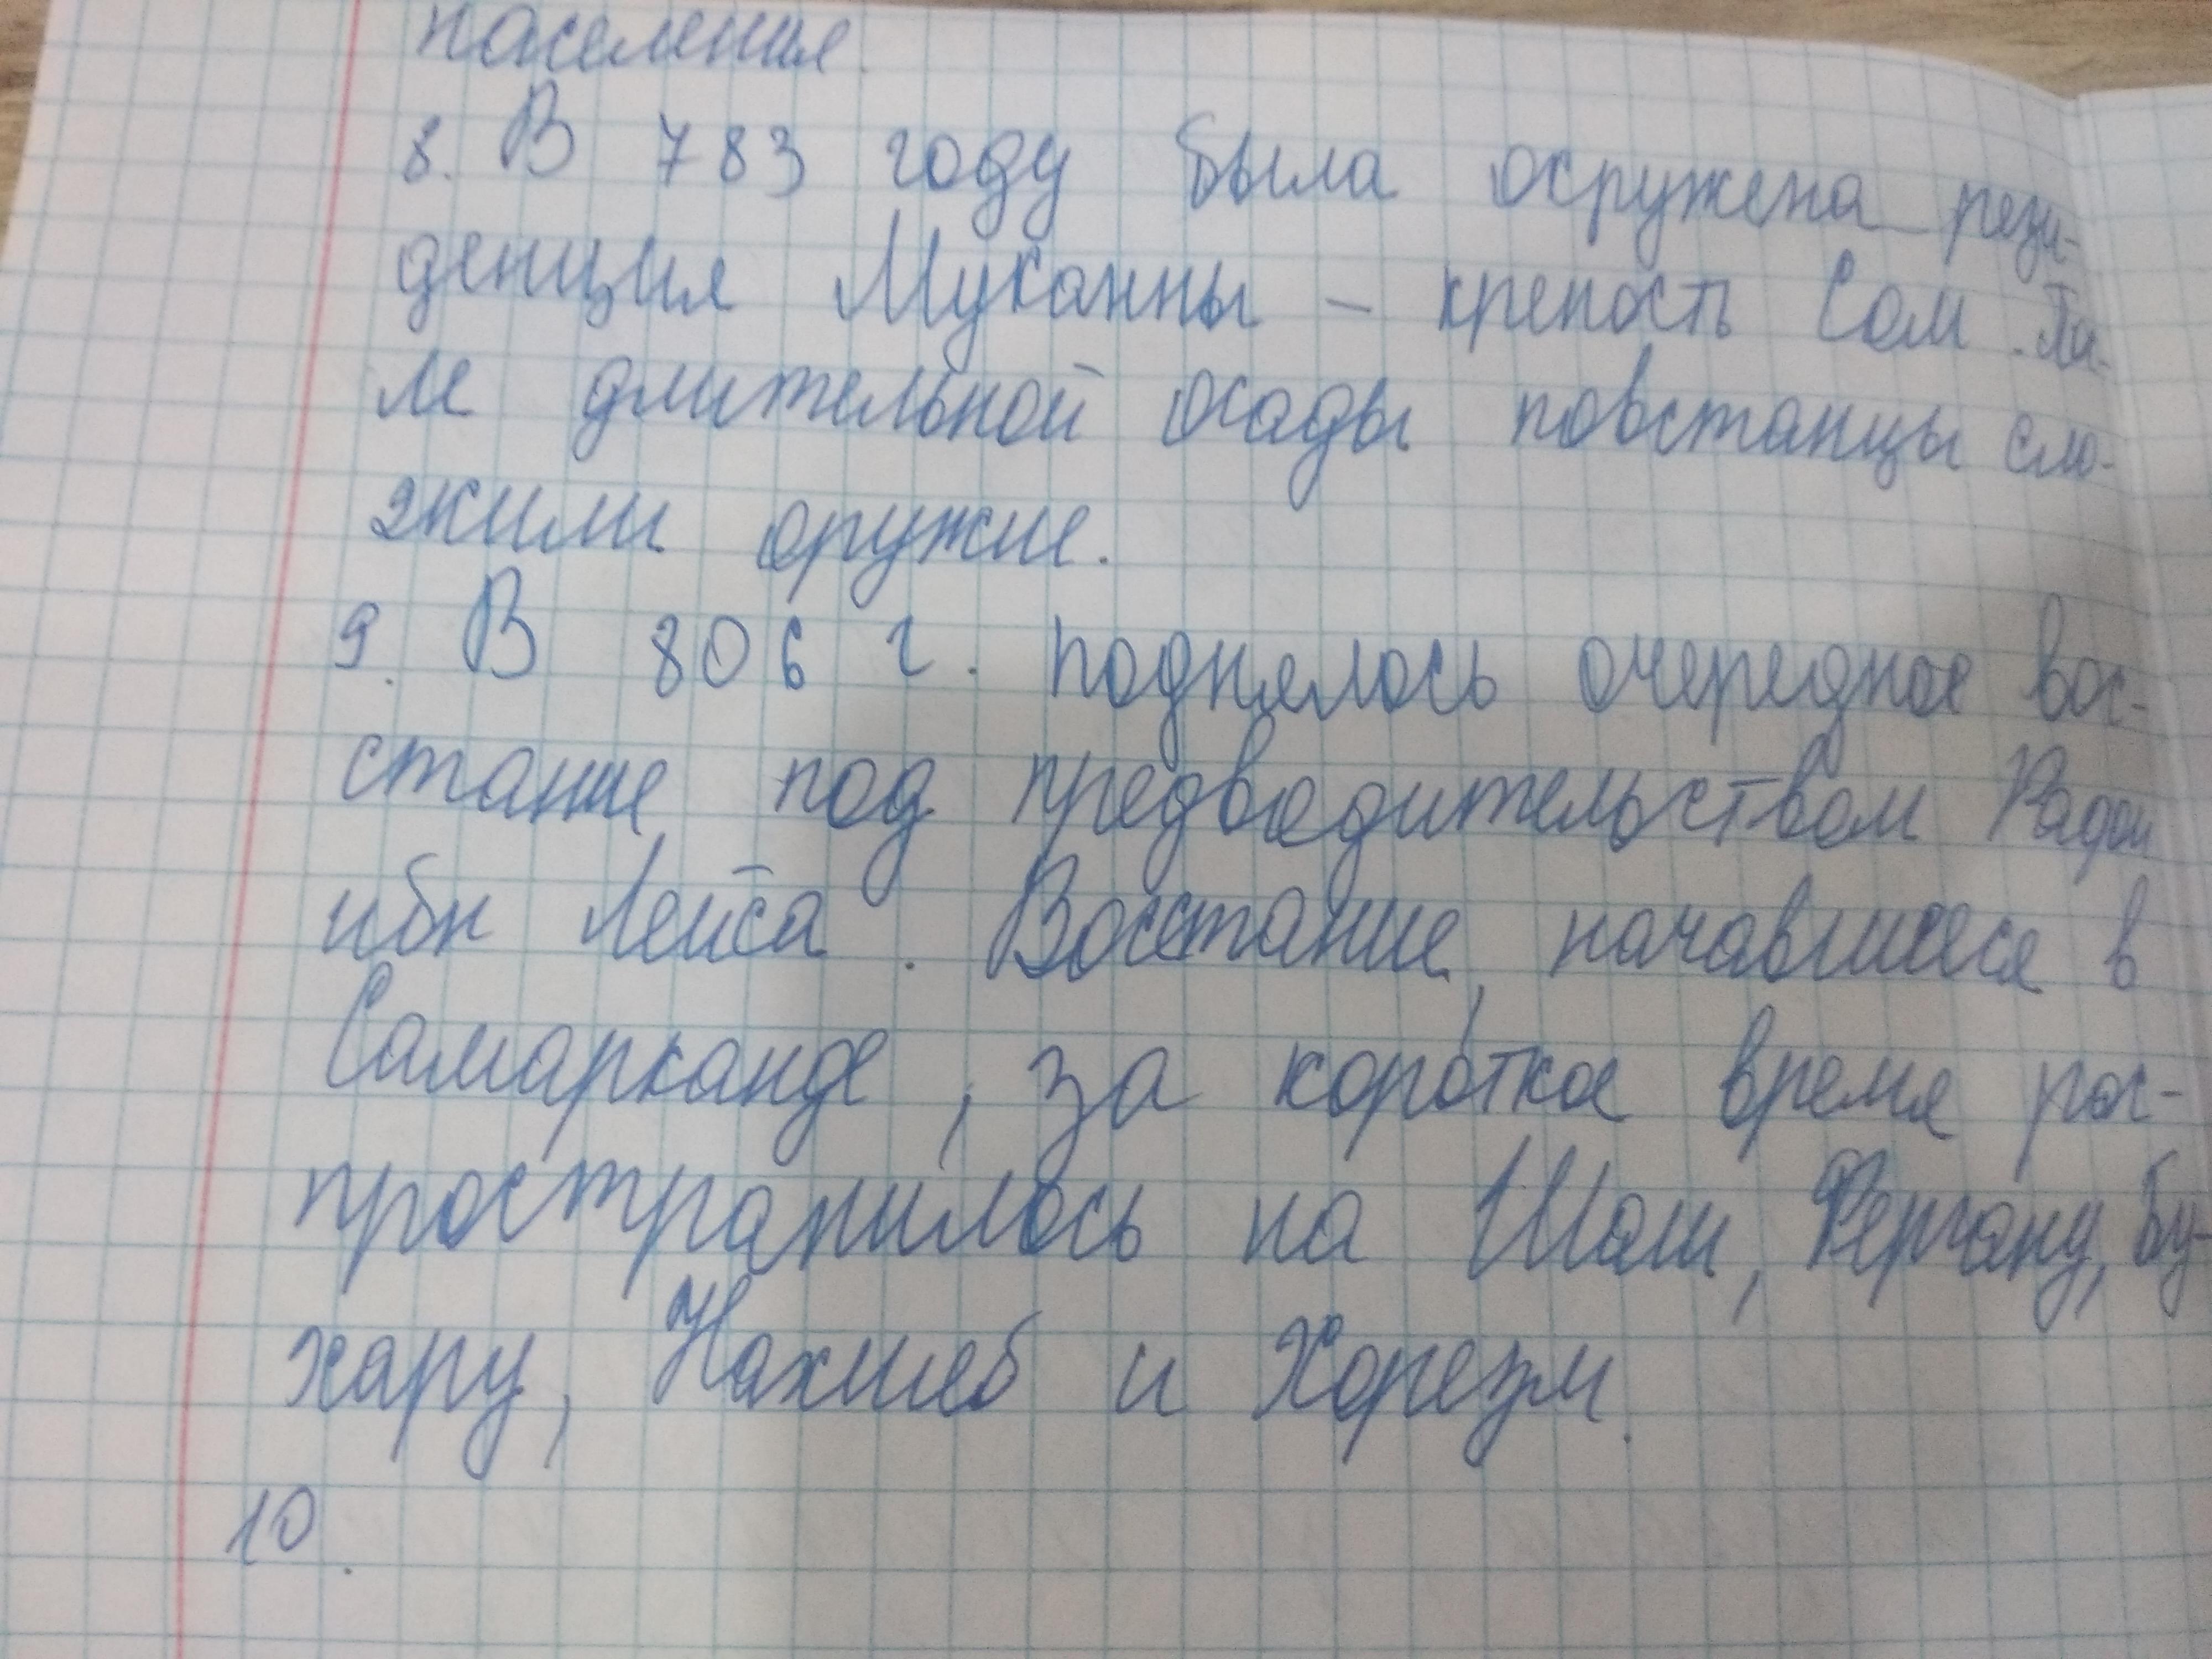 население.
8. В 783 году была окружена рези-
денция Муканны – крепость Сом.
ле длительной осады повстанцы сло-
жили оружие.
9. В 806 г. поднялось очередное вос-
стание под предводительством
ибн Лейса. Восстание, начавшееся в
Самарканде, за короткое время рас-
пространилось на Шаш, Фергану, Бу-
хару, Нахшеб и Хорезм.
10.